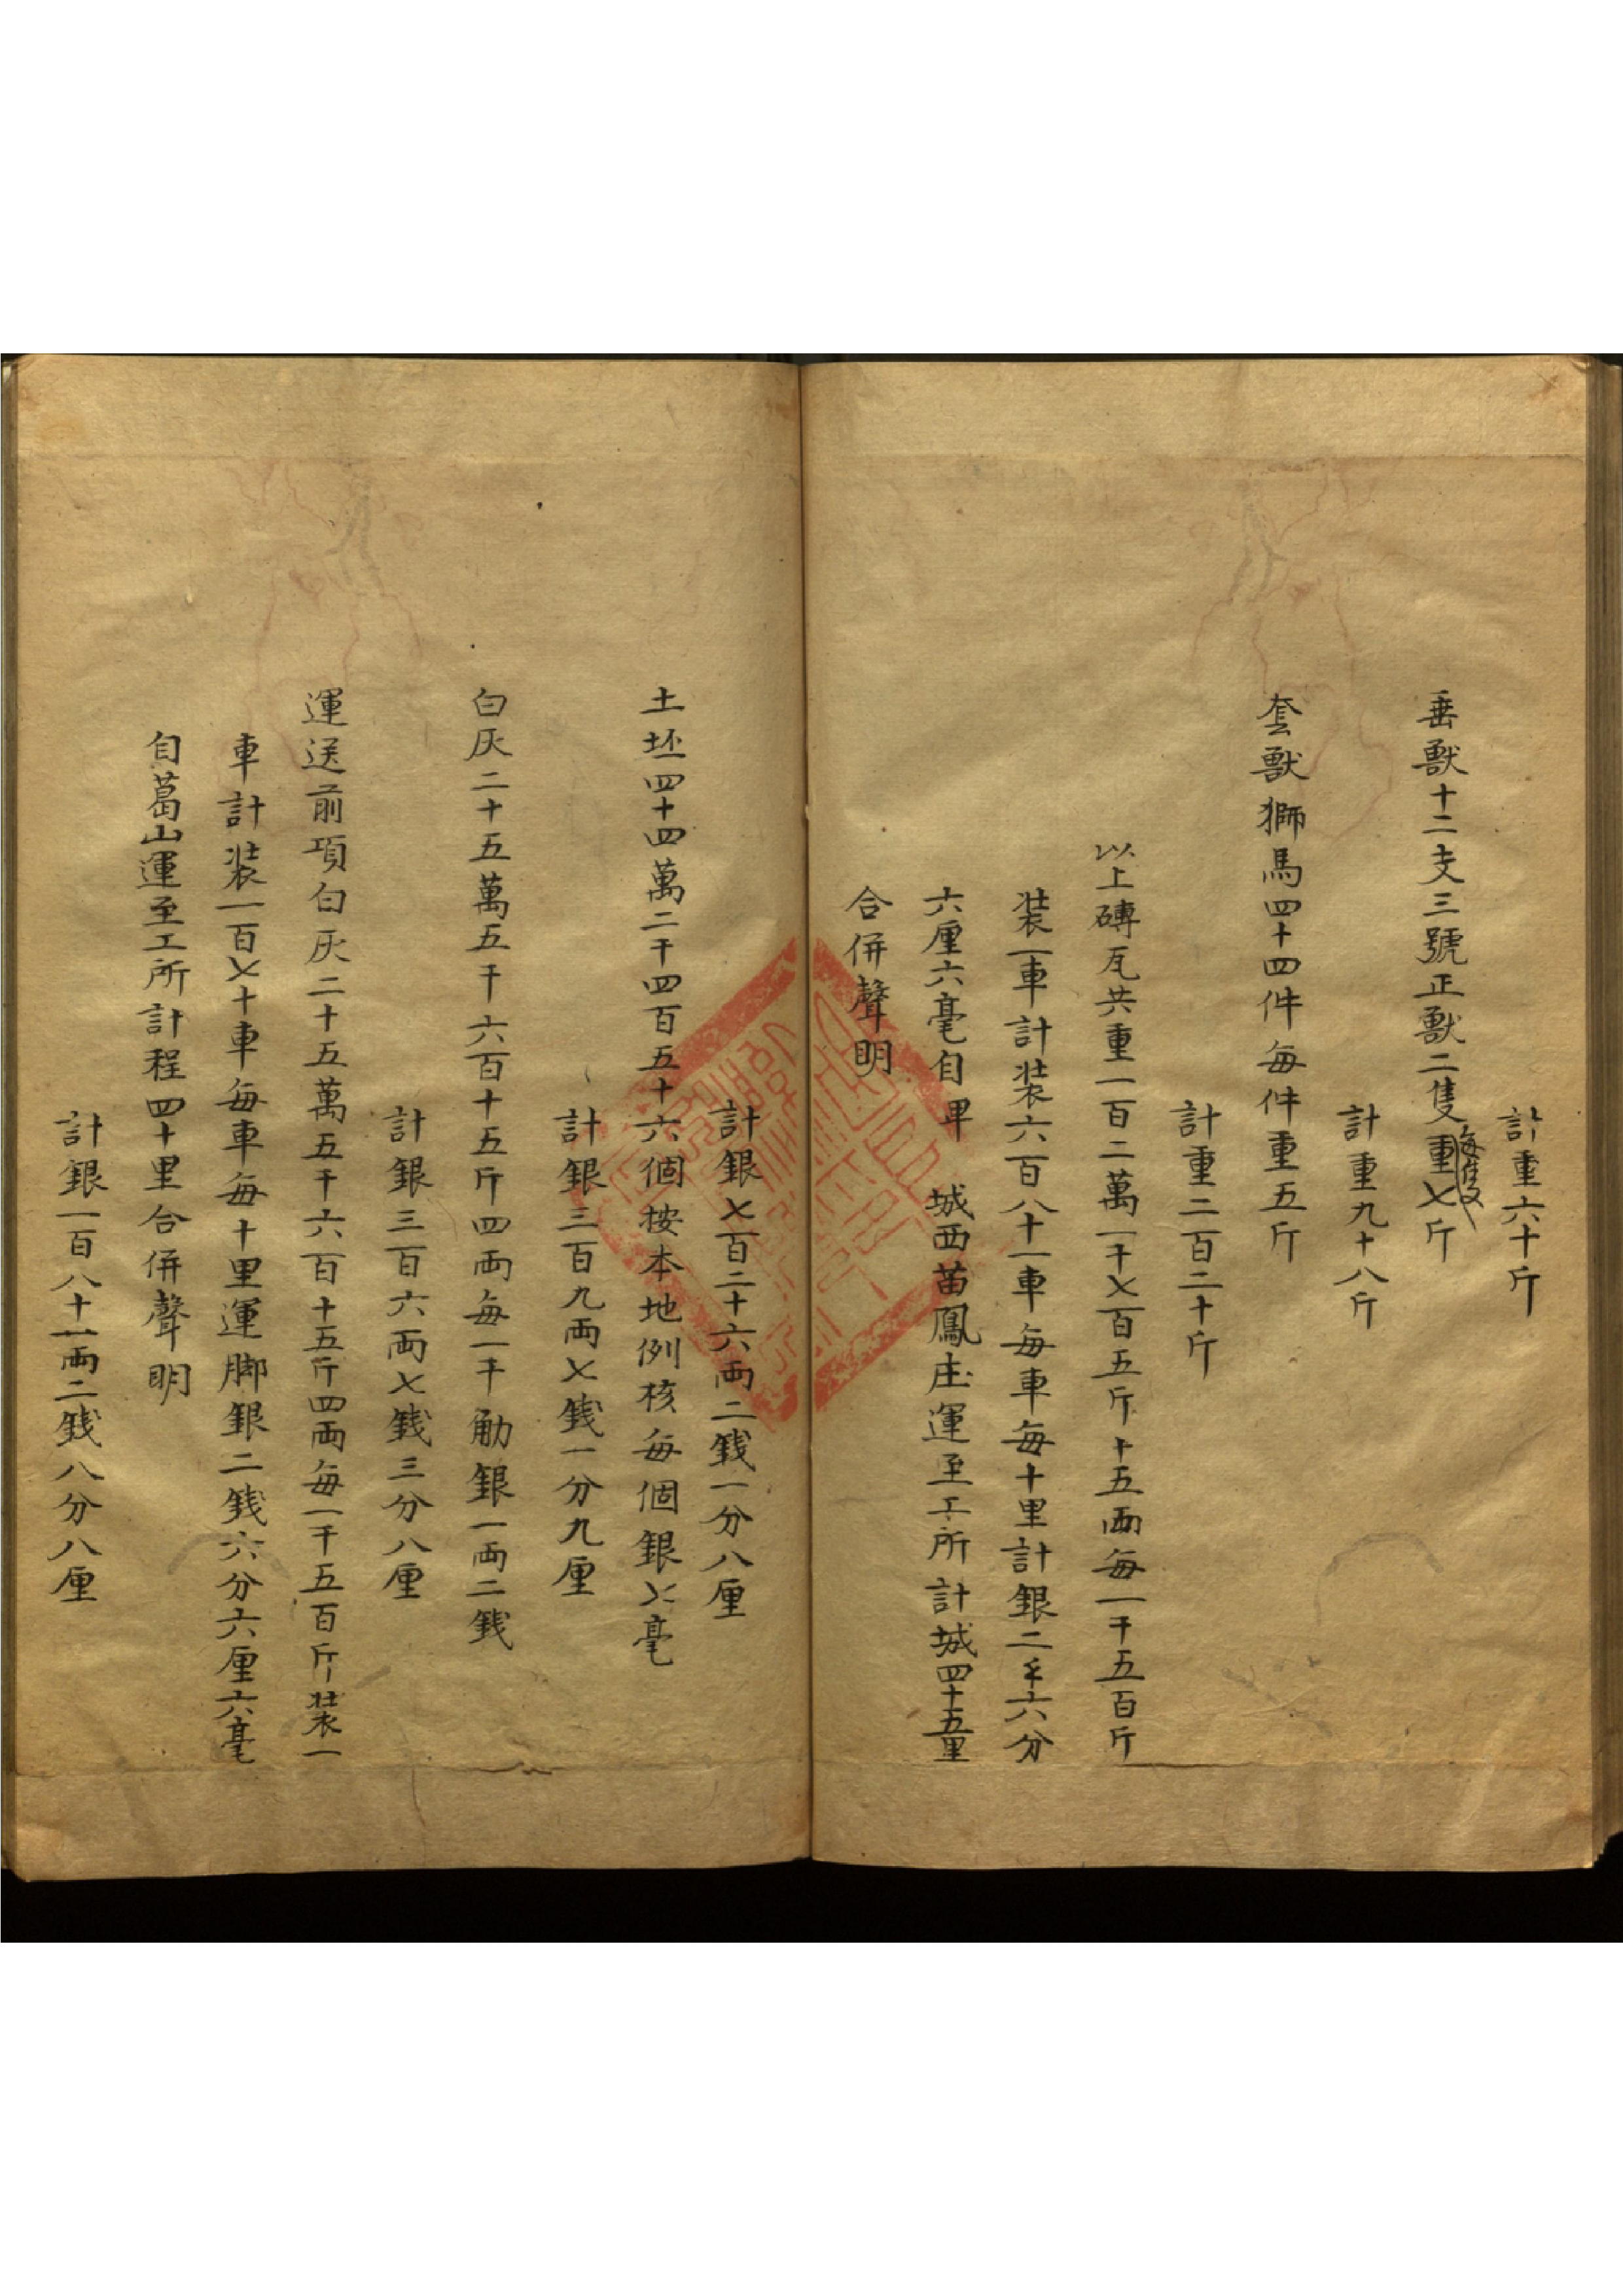 計重六十斤
垂獸十二支三號正獸二隻每隻重七斤
計重九十八斤
套獸獅馬四十四件每件重五斤
計重二百二十斤
以上磚瓦共重一百二萬一千七百五斤十五兩每一千五百斤
裝一車計裝六百八十一車每車每十里計銀二𠦑六分
六厘六毫自 城西苗鳳庄運至工所計城四十五里
合併聲明
計銀七百二十六両二錢一分八厘
土坯四十四萬二千四百五十六個按本地例核每個銀七毫
計銀三百九両七錢一分九厘
白灰二十五萬五千六百十五斤四両每一千觔銀一両二錢
計銀三百六両七錢三分八厘
運送前項白灰二十五萬五千六百十五斤四両每一千五百斤裝一
車計裝一百七十車每車每十里運脚銀二錢六分六厘六毫
自葛山運至工所計程四十里合併聲明
計銀一百八十一両二錢八分八厘